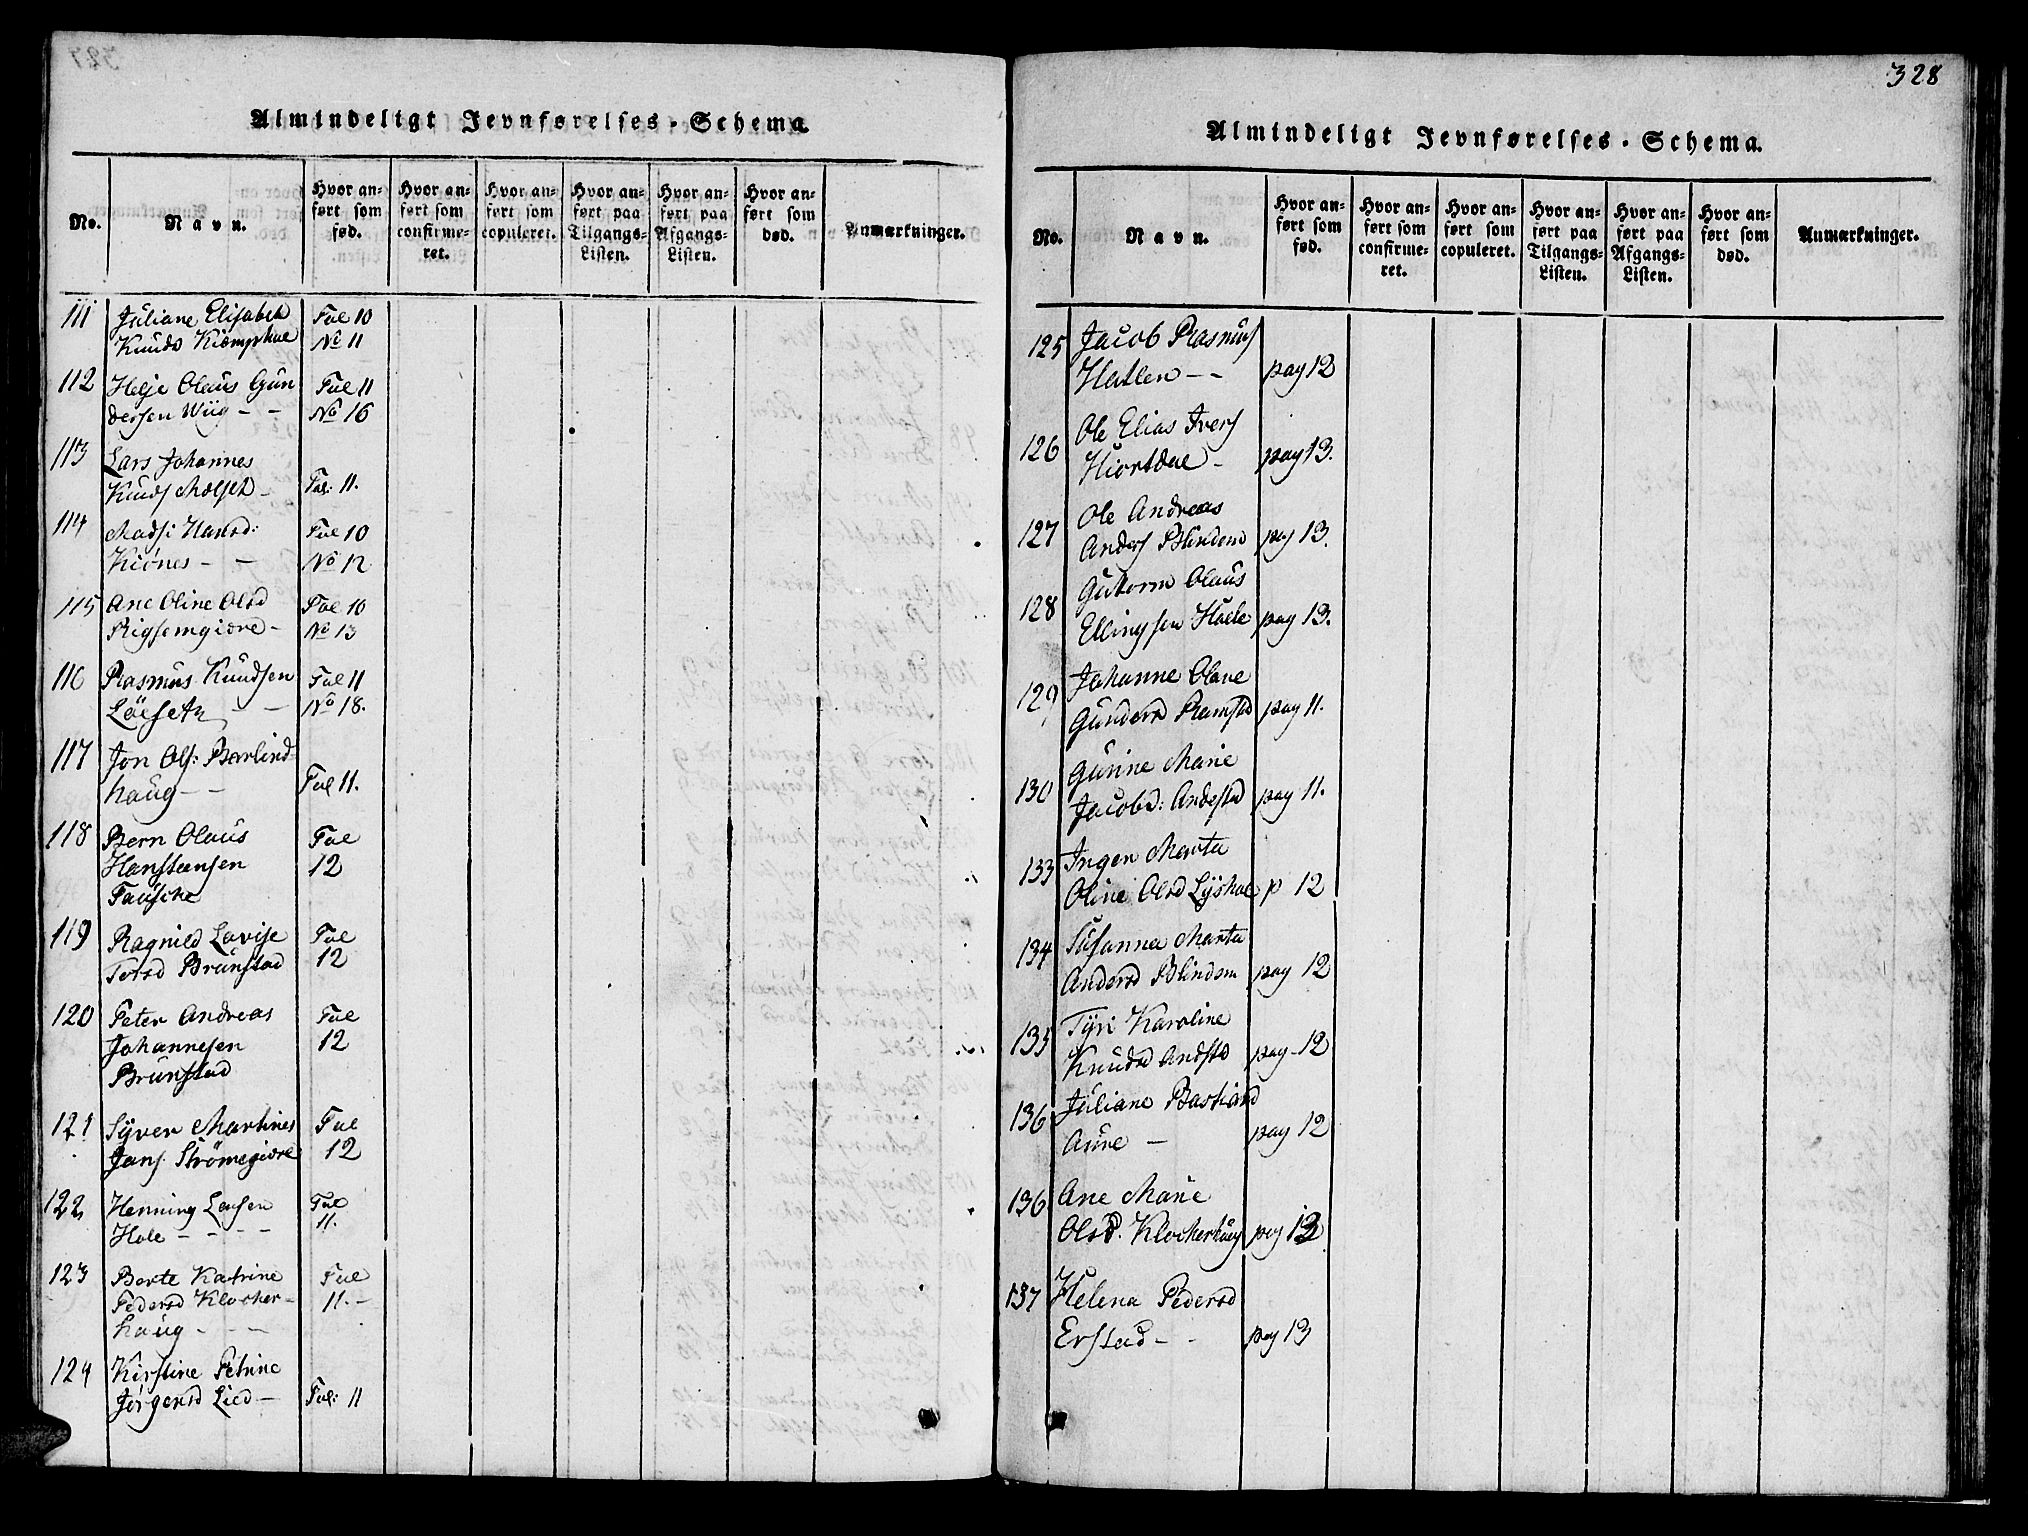 Almindeligt Jevnførelses-Schema.
No.
Navn.
Hvor anført som fød.
Hvor anført som confirmeret.
Hvor anført som copuleret.
Hvor anført paa Tilgangs-Listen.
Hvor anført paa Afgangs-Listen.
Hvor anført som død.
Anmærkninger.
111 Juliane Elisabeth Fol 10
Knuds No 11
112 Helje Olaus Gun Fol 11
dersen Wiig - - No 16
113 Lars Johannes
Knuds Molset - Fol: 11.
114 Madsi Hansd: Fol 10
Kiönes - - No 12
115 Ane Oline Olsd Fol 10
Rigsemgiære - No 13
116 Rasmus Knudsen Fol 11
Löeseth - No 18.
117 Jon Ols: Berlind
haug - - Fol 11.
118 Bern Olaus Fol
Hanssteensen 12
Fausche
119 Ragnild Lovise Fol
Torsd Brunstad 12
120 Peter Andreas Fol
Johannesen 12
Brunstad
121 Syver Martines Fol
Jans. Strömegiære 12
122 Henning Larsen Fol
Hole - - - - 11.
123 Berte Katrine Fol
Pedersd Klocker- 11.-
haug - - -
124 Kirstine Petrine
Jørgensd Lied - Fol: 11
328
Almindeligt Jevnførelses-Schema.
No.
Navn.
Hvor anført som fød.
Hvor anført som confirmeret.
Hvor anført som copuleret.
Hvor anført paa Tilgangs-Listen.
Hvor anført paa Afgangs-Listen.
Hvor anført som død.
Anmærkninger.
125 Jacob Rasmus
Hatlen - - pag 12
126 Ole Elias Ivers
Hiortdal - pag 13.
127 Ole Andreas
Anders Blindem pag 13.
128 Guttorm Olaus
Ellingsen Holle pag 13.
129 Johanne Olave
Gundersd Ramstad pag 11.
130 Gurine Marie
Jacobsd: Andestad pag 11.
133 Inger Marta
Oline Olsd Lyshol p 12
134 Susanna Marta
Andersd Blindem pag 12
135 Tyri Karoline
Knudsd Andstad pag 12
136 Juliane Bastiand
Aure - pag 12
136 Ane Marie
Olsd. Klockerhaug pag 12
137 Helena Pedersd
Erstad - - pag 13